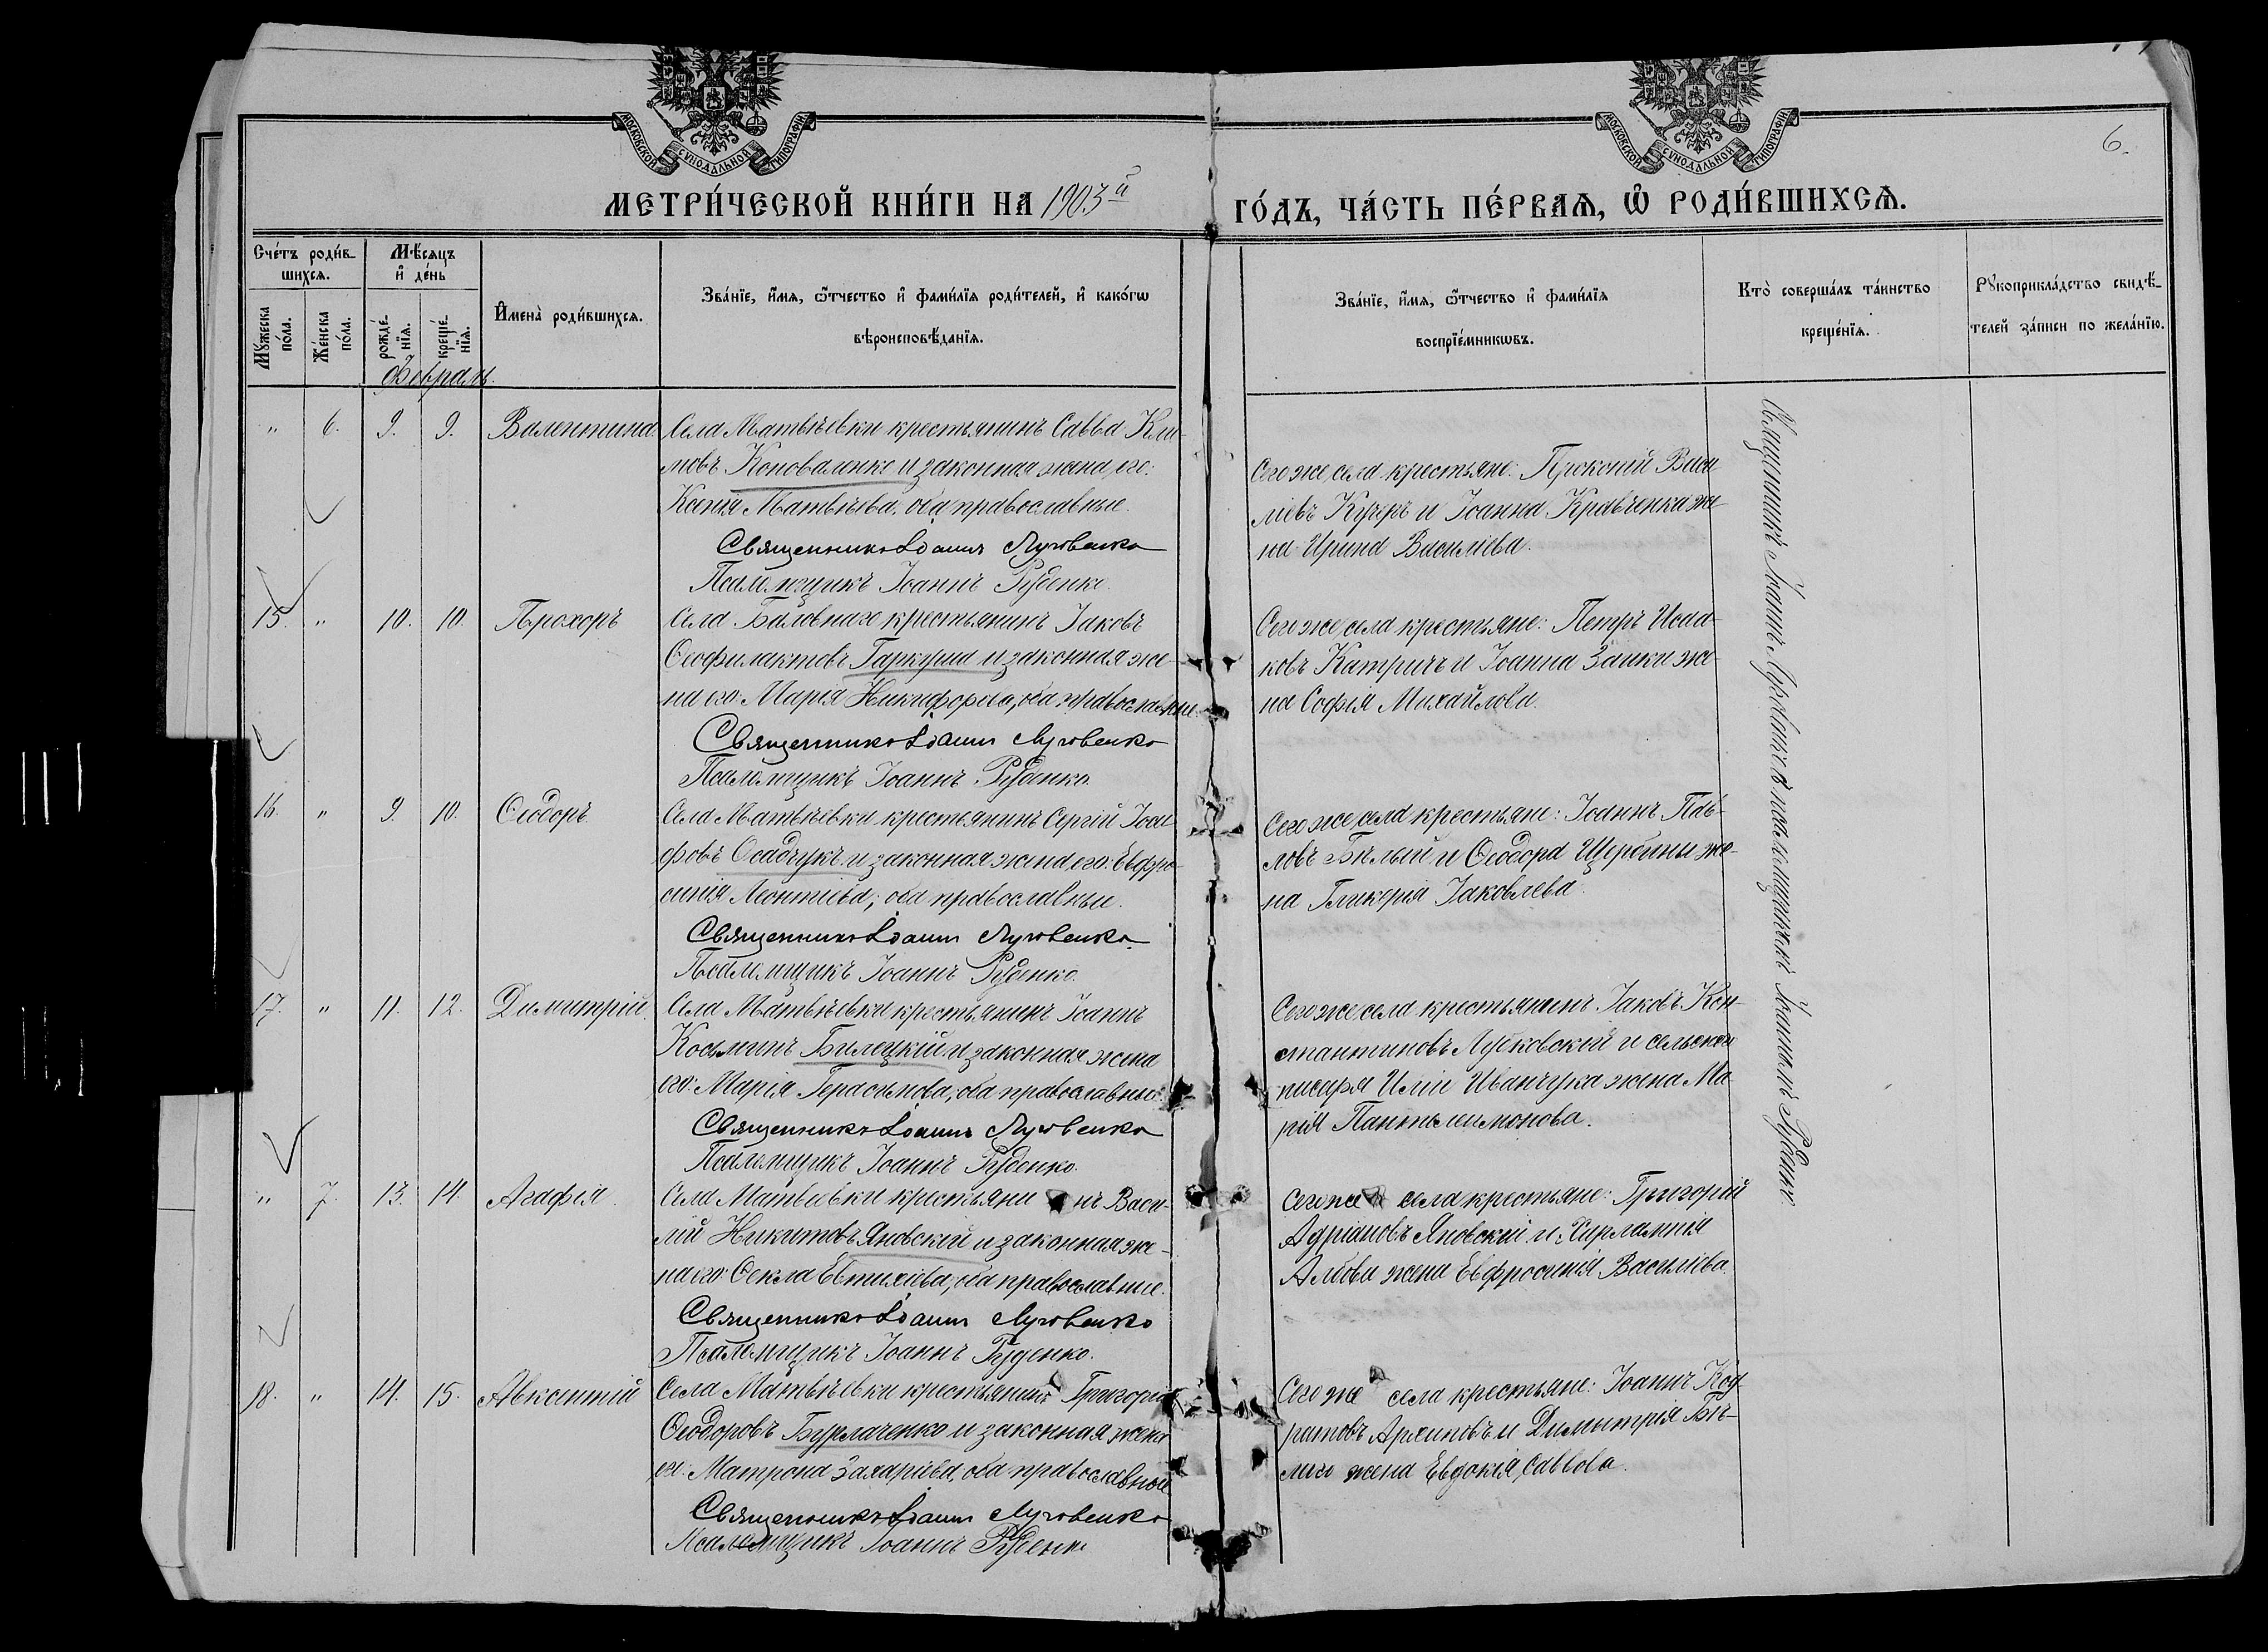 МОСКОВСКОЙ СѴНОДАЛЬНОЙ ТИПОГРАФІИ
МОСКОВСКОЙ СѴНОДАЛЬНОЙ ТИПОГРАФІИ
6.
МЕТРИ́ЧЕСКОЙ КНИ́ГИ НА 1903й
ГО́ДЪ, ЧА́СТЬ ПЕ́РВАѦ, Ѡ҆ РОДИ́ВШИХСѦ.
Сче́тъ роди́в-
шихсѧ.
Мѣ́сяцъ
и҆ де́нь
Мꙋ́жеска
по́ла.
Же́нска
по́ла.
рожде́-
нїѧ.
креще́-
нїѧ.
И҆мена̀ роди́вшихсѧ.
Зва́нїе, и҆́мѧ, ѻ҆́тчество и҆ фами́лїѧ роди́телей, и҆ како́гѡ
вѣроисповѣ́данїѧ.
Зва́нїе, и҆́мѧ, ѻ҆́тчество и҆ фами́лїѧ
воспрїе́мникѡвъ.
Кто̀ соверша́лъ та́инство
креще́нїѧ.
Рꙋкоприкла́дство свидѣ́-
телей за́писи по жела́нїю.
Февраль.
" 6. 9. 9. Валентина. Села Матвѣевки крестьянинъ Савва Кли-
мовъ Коноваленко и законная жена его:
Ксенія Матвѣева, оба православные.
Священникъ Іоаннъ Луговенко
Псаломщикъ Іоаннъ Руденко.
Сего же села крестьяне: Прокопій Васи
ліевъ Кучеръ и Іоанна Кравченка же
на Ирина Василіева.
15. " 10. 10. Прохоръ Села Баловнаго крестьянинъ Іаковъ
Ѳеофилактовъ Гаркуша и законная же-
на его: Марія Никифорова, оба православные.
Священникъ Іоаннъ Луговенко
Псаломщикъ Іоаннъ Руденко.
Сего же села крестьяне: Петръ Исаа-
ковъ Катричъ и Іоанна Заики же-
на Софія Михайлова.
16. " 9. 10. Ѳеодоръ Села Матвѣевки крестьянинъ Сергій Іоси
фовъ Осадчукъ и законная жена его: Евфро-
синія Леонтіева, оба православные.
Священникъ Іоаннъ Луговенко
Псаломщикъ Іоаннъ Руденко.
Сего же села крестьяне: Іоаннъ Пав-
ловъ Бѣлый и Ѳеодора Щербины же-
на Гликерія Іаковлева.
17. " 11. 12. Димитрій. Села Матвѣевки крестьянинъ Іоаннъ
Космінъ Билецкій и законная жена
его: Марія Герасимова, оба православные.
Священникъ Іоаннъ Луговенко
Псаломщикъ Іоаннъ Руденко.
Сего же села крестьянинъ Іаковъ Кон-
стантиновъ Лубковскій и сельскаго
писаря Иліи Иванчука жена Ма
рія Пантелеимонова.
" 7. 13. 14. Агафія. Села Матвеевки крестьянинъ Васи-
лій Никитовъ Яновскій и законная же-
на его: Ѳекла Евтихіева, оба православные.
Священникъ Іоаннъ Луговенко
Псаломщикъ Іоаннъ Руденко.
Сего же села крестьяне: Григорій
Адріановъ Яновскій и Харлампія
жена Евфросинія Василіева.
18. " 14. 15. Авксентій Села Матвѣевки крестьянинъ Григорій
Ѳеодоровъ Бурлаченко и законная жена
его: Матрона Захаріева, оба православные
Священникъ Іоаннъ Луговенко
Псаломщикъ Іоаннъ Руденко
Сего же села крестьяне: Іоаннъ Код-
ратовъ Архиповъ и Димитрія Бѣ-
лаго жена Евдокія Саввова.
Священникъ Іоаннъ Луговенко съ псаломщикомъ Іоанномъ Руденко.